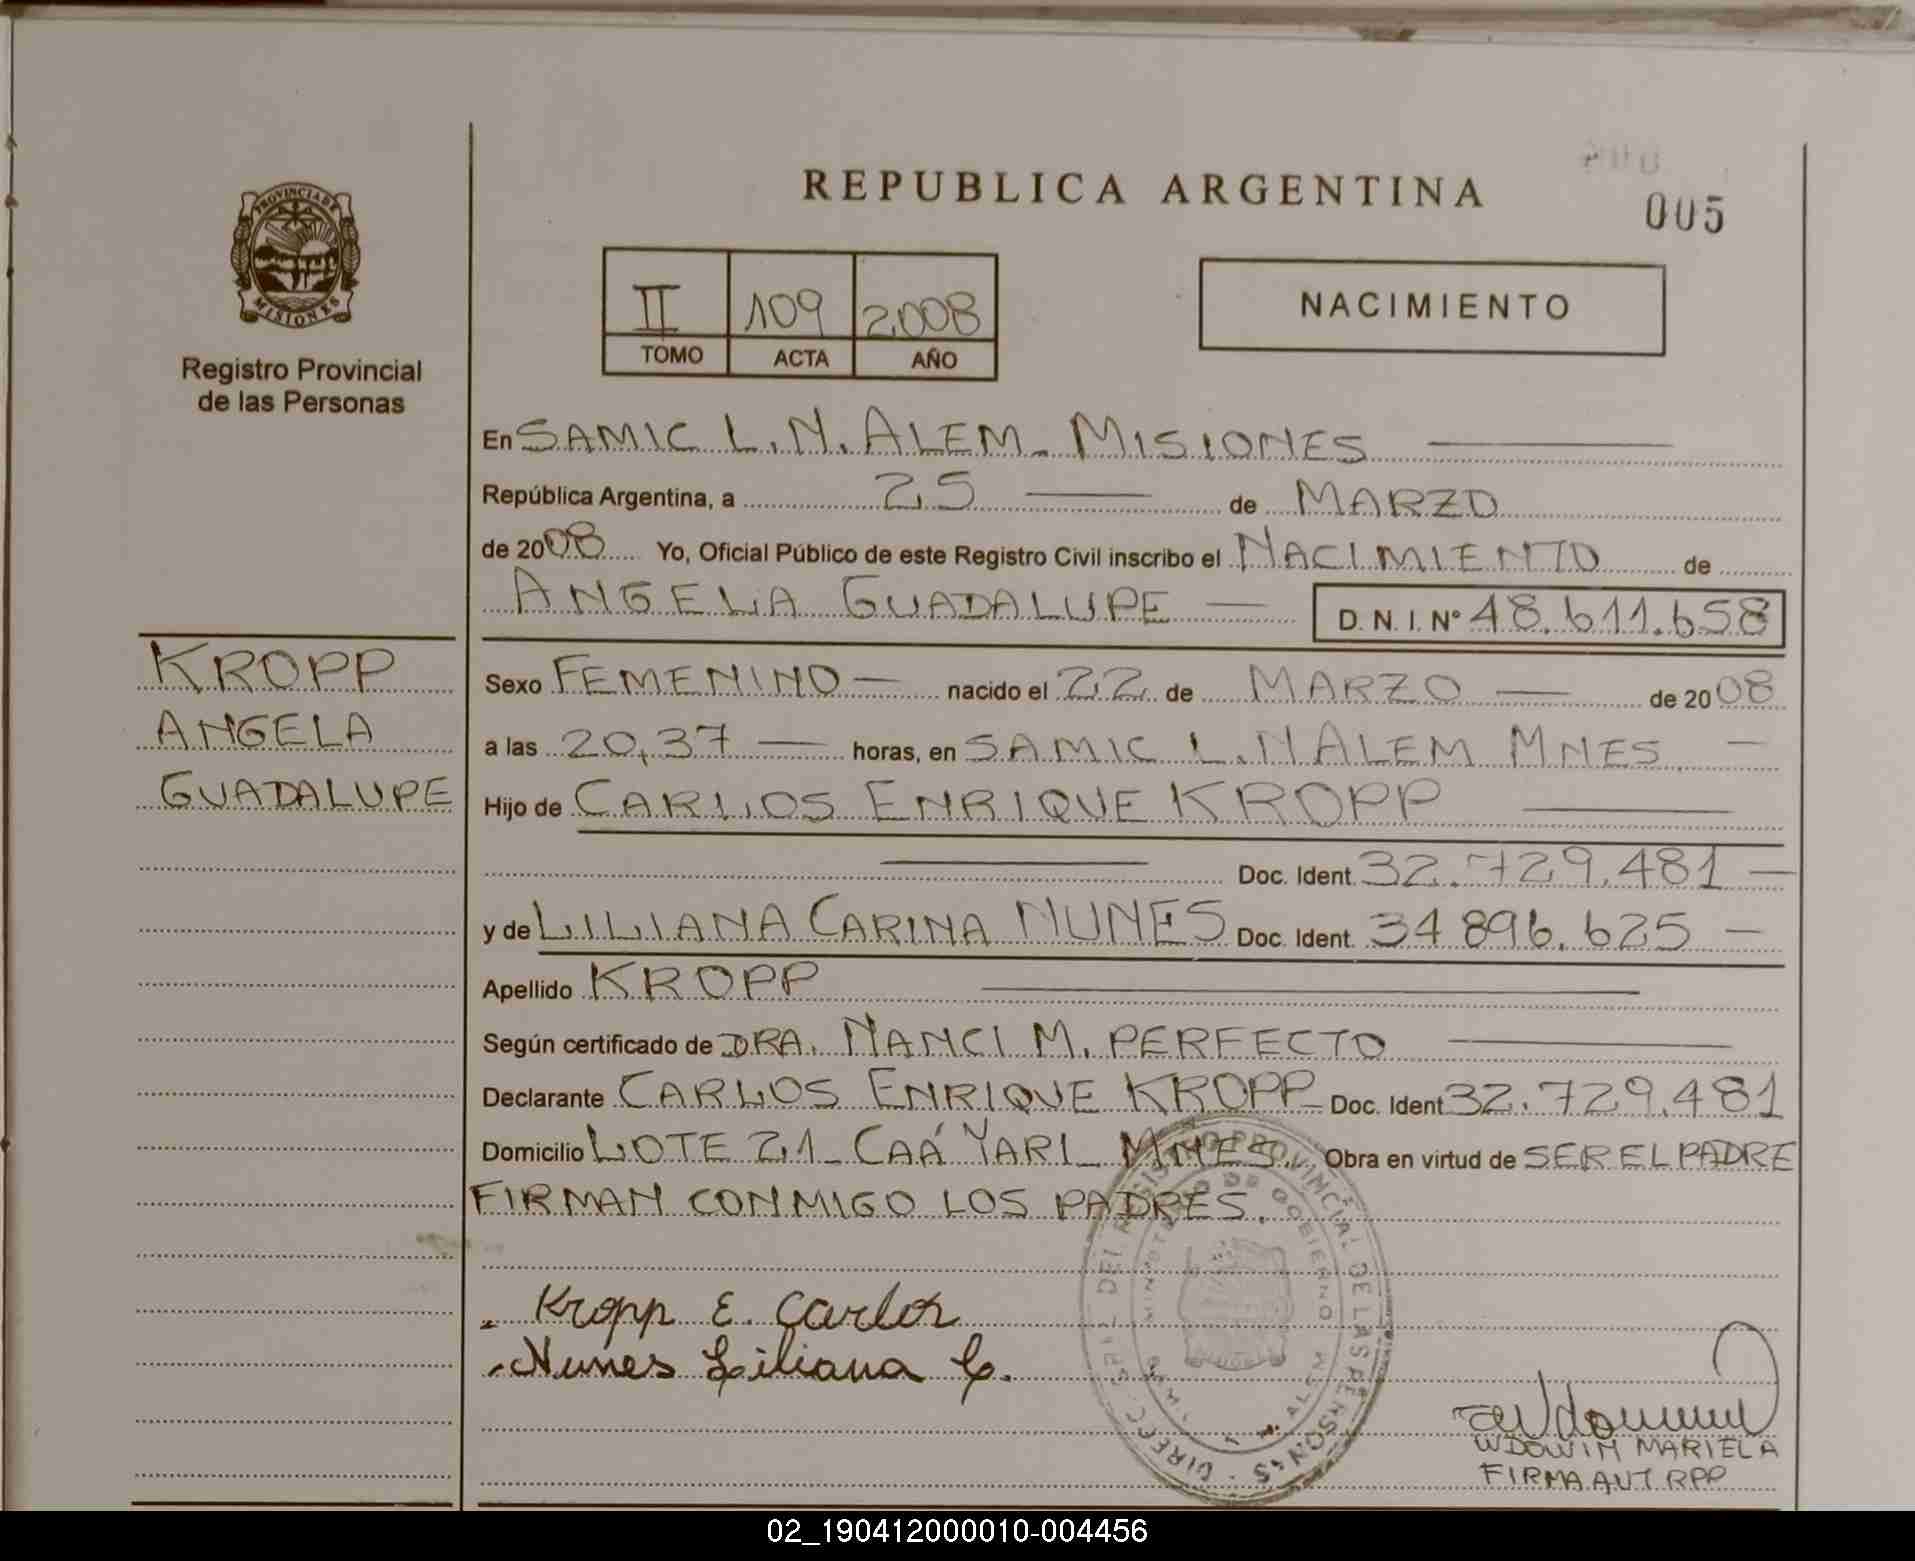 REPUBLICA ARGENTINA
005
PROVINCIA DE
MISIONES
Registro Provincial
de las Personas
II 109 2008
TOMO ACTA AÑO
NACIMIENTO
En SAMIC L.N. ALEM - MISIONES
República Argentina, a 25 de MARZO
de 2008 Yo, Oficial Público de este Registro Civil inscribo el NACIMIENTO de
ANGELA GUADALUPE D. N. I. Nº 48.611.658
KROPP
ANGELA
GUADALUPE
Sexo FEMENINO nacido el 22 de MARZO de 2008
a las 20,37 horas, en SAMIC L.N ALEM MNES
Hijo de CARLOS ENRIQUE KROPP
Doc. Ident. 32.729.481
y de LILIANA CARINA NUNES Doc. Ident. 34 896.625
Apellido KROPP
Según certificado de DRA. NANCI M. PERFECTO
Declarante CARLOS ENRIQUE KROPP Doc. Ident 32.729.481
Domicilio LOTE 21 - CAÁ YARI - MNES. Obra en virtud de SER EL PADRE
FIRMAN CONMIGO LOS PADRES.
Kropp E. Carlos
Nunes Liliana C.
WDOWIN MARIELA
FIRMA AUT RPP
02_190412000010-004456